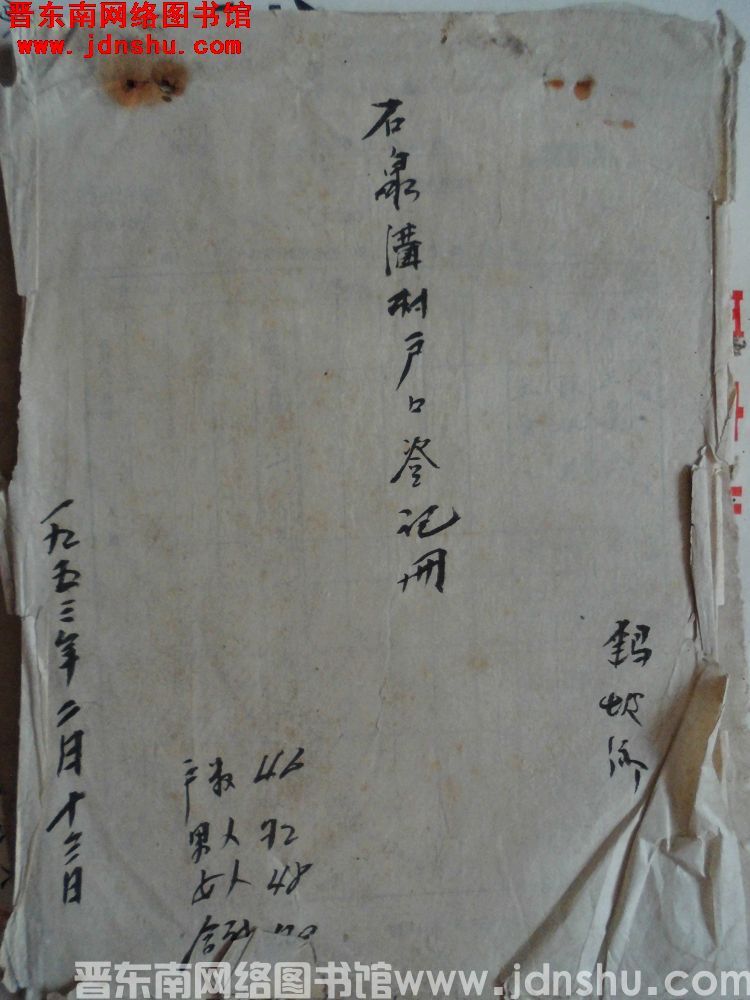 晋东南网络图书馆
www.jdnshu.com
石泉溝村户口登记册
一九五三年二月十六日
户数 46
男人 72
女人 48
晋东南网络图书馆www.jdnshu.com